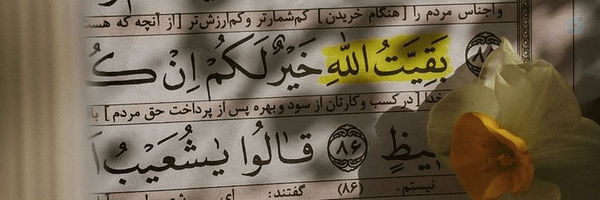 و اجناس مردم را [هنگام خریدن] کم‌شمارتر و کم‌ارزش‌تر [از آنچه که هس
۸۵ بَقِيَّتُ اللَّهِ خَيْرٌ لَكُمْ إِنْ كُ
خدا [در کسب و کارتان از سود و بهره پس از پرداخت حق مردم]
ـفِيظٍ ۸۶ قَالُوا يَٰشُعَيْبُ أَ
نیستم. (۸۶) گفتند: ای